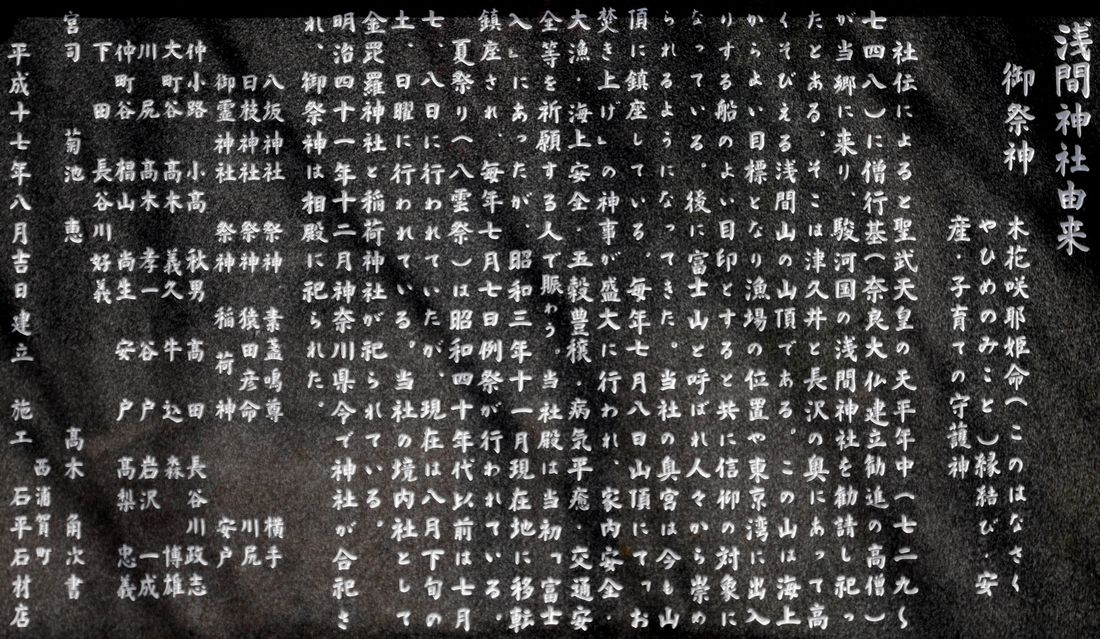 浅間神社由来
御祭神
木花咲耶姫命(このはなさく
やひめのみこと)縁結び・安
産・子育ての守護神
社伝によると聖武天皇の天平年中(七二九〜
七四八)に僧行基(奈良大仏建立勧進の高僧)
が当郷に来り、駿河国の浅間神社を勧請し祀っ
たとある。そこは津久井と長沢の奥にあって高
くそびえる浅間山の山頂である。この山は海上
からよい目標となり漁場の位置や東京湾に出入
りする船のよい目印とすると共に信仰の対象に
なっている。後に富士山と呼ばれ人々から崇め
られるようになってきた。当社の奥宮は今も山
頂に鎮座している。毎年七月八日山頂にて「お
焚き上げ」の神事が盛大に行われ、家内安全・
大漁・海上安全・五穀豊穣・病気平癒・交通安
全等を祈願する人で賑わう。当社殿は当初「富士
入」にあったが、昭和三年十一月現在地に移転
鎮座され、毎年七月七日例祭が行われている。
夏祭り(八雲祭)は昭和四十年代以前は七月
七、八日に行われていたが、現在は八月下旬の
土、日曜に行われている。当社の境内社として
金毘羅神社と稲荷神社が祀られている。
明治四十一年十二月神奈川県令で神社が合祀さ
れ、御祭神は相殿に祀られた。
八坂神社 祭神 素盞鳴尊 横手
日枝神社 祭神 猿田彦命 川尻
御霊神社 祭神 稲荷神 安戸
仲小路 小高 秋男 高田 長谷川政志
大町谷 高木 義久 牛込 森 博雄
川尻 高木 孝一 谷戸 岩沢 一成
仲町谷 椙山 尚生 安戸 高梨 忠義
下田 長谷川好義
宮司 菊池 恵 高木 角次書
西浦賀町
平成十七年八月吉日建立 施工 石平石材店